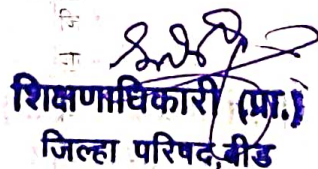 जि
शिक्षणाधिकारी (प्रा.)
जिल्हा परिषद,बीड